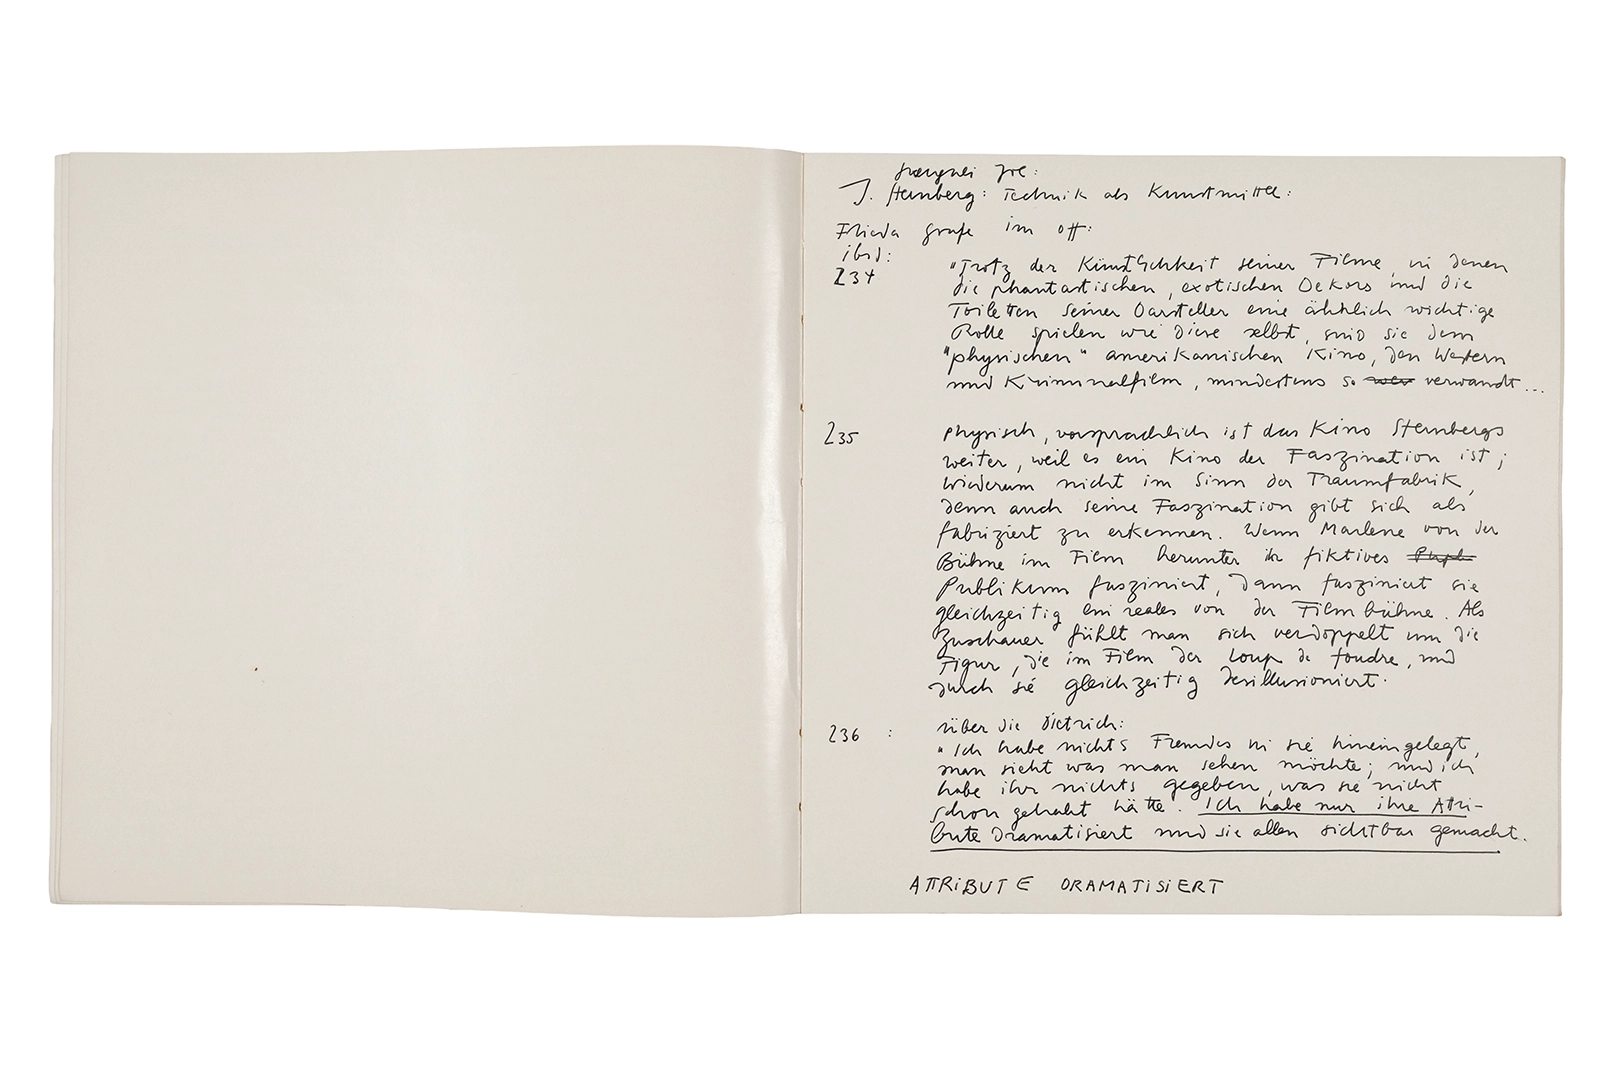 Joe:
J. Sternberg: Technik als Kunstmittel:
Frieda Grafe im Off:
ibid:
234
"Trotz der Künstlichkeit seiner Filme, in denen
die phantastischen, exotischen Dekors und die
Toiletten seiner Darsteller eine ähnlich wichtige
Rolle spielen wie diese selbst, sind sie dem
"physischen" amerikanischen Kino, den Western
und Kriminalfilm, mindestens so verwandt...
235
physisch, vorsprachlich ist das Kino Sternbergs
weiter, weil es ein Kino der Faszination ist;
wiederum nicht im Sinn der Traumfabrik,
denn auch seine Faszination gibt sich als
fabriziert zu erkennen. Wenn Marlene von der
Bühne im Film herunter ihr fiktives
Publikum fasziniert, dann fasziniert sie
gleichzeitig ein reales von der Filmbühne. Als
Zuschauer fühlt man sich verdoppelt um die
Figur, die im Film der coup de foudre, und
durch sie gleichzeitig desillusioniert.
236 :
über die Dietrich:
"Ich habe nichts Fremdes in sie hineingelegt,
man sieht was man sehen möchte; und ich
habe ihr nichts gegeben, was sie nicht
schon gehabt hätte. Ich habe nur ihre Attri-
bute dramatisiert und sie allen sichtbar gemacht.
ATTRIBUTE DRAMATISIERT